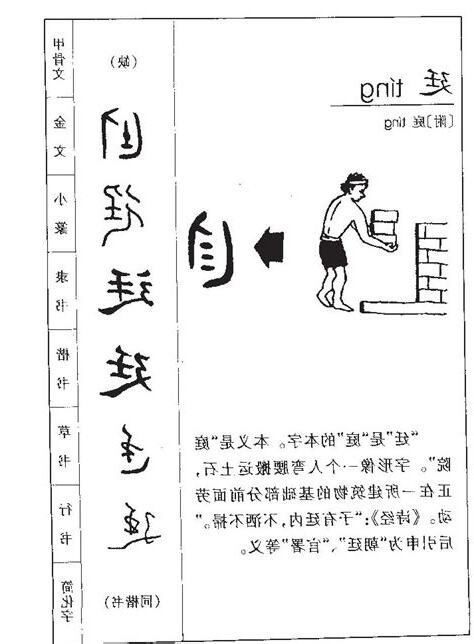 廷 tíng
〔附〕庭 tíng
“廷”是“庭”的本字。本义是“庭
院”。字形像一个人弯腰搬运土石，
正在一所建筑物的基础部分前面劳
动。《诗经》：“子有廷内，不洒不扫。”
后引申为“朝廷”、“官署”等义。
甲骨文
（缺）
金文
小篆
隶书
廷
楷书
廷
草书
行书
简化字
（同楷书）